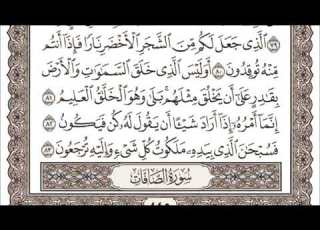 ٱلَّذِى جَعَلَ لَكُم مِّنَ ٱلشَّجَرِ ٱلْأَخْضَرِ نَارًا فَإِذَآ أَنتُم
مِّنْهُ تُوقِدُونَ ٨٠ أَوَلَيْسَ ٱلَّذِى خَلَقَ ٱلسَّمَٰوَٰتِ وَٱلْأَرْضَ
بِقَٰدِرٍ عَلَىٰٓ أَن يَخْلُقَ مِثْلَهُم بَلَىٰ وَهُوَ ٱلْخَلَّٰقُ ٱلْعَلِيمُ ٨١
إِنَّمَآ أَمْرُهُۥٓ إِذَآ أَرَادَ شَيْـًٔا أَن يَقُولَ لَهُۥ كُن فَيَكُونُ ٨٢
فَسُبْحَٰنَ ٱلَّذِى بِيَدِهِۦ مَلَكُوتُ كُلِّ شَىْءٍ وَإِلَيْهِ تُرْجَعُونَ ٨٣
سُورَةُ ٱلصَّافَّاتِ